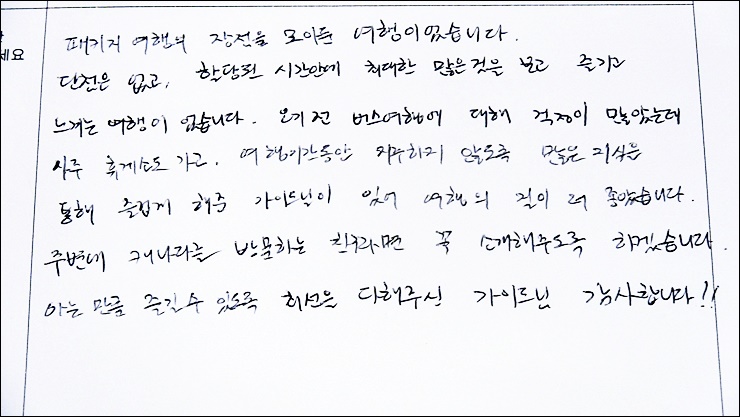 세요
패키지 여행의 장점을 모아둔 여행이었습니다.
단점은 없고, 할당된 시간안에 최대한 많은것을 보고 즐기고
느끼는 여행이 었습니다. 오기 전 버스여행에 대해 걱정이 많았는데
자주 휴게소도 가고, 여행기간동안 지루하지 않도록 많은 지식을
통해 즐겁게 해준 가이드님이 있어 여행의 질이 더 좋았습니다.
주변에 캐나다를 방문하는 친구라면 꼭 소개해주도록 하겠습니다.
아는 만큼 즐길 수 있도록 최선을 다해주신 가이드님 감사합니다!!